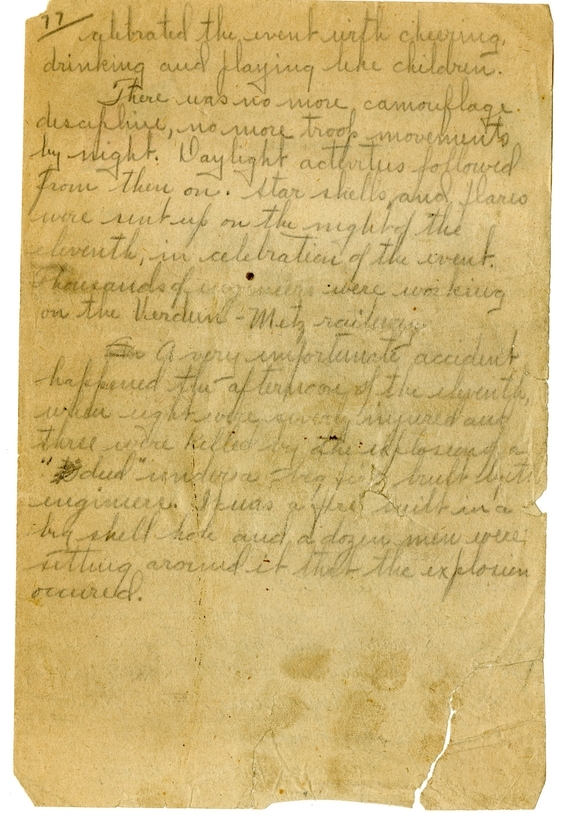 77
celebrated the event with cheering,
drinking and playing like children.
There was no more camouflage
discipline, no more troop movements
by night. Daylight activities followed
from then on. Star shells and flares
were sent up on the night of the
eleventh, in celebration of the event.
Thousands of engineers were working
on the Verdun-Metz railway.
A very unfortunate accident
happened the afternoon of the eleventh,
when eight were injured and
three were killed by the explosion of a
"dud" under a big fire built by
engineers. It was a fire built in a
big shell hole and a dozen men were
sitting around it that the explosion
occured.